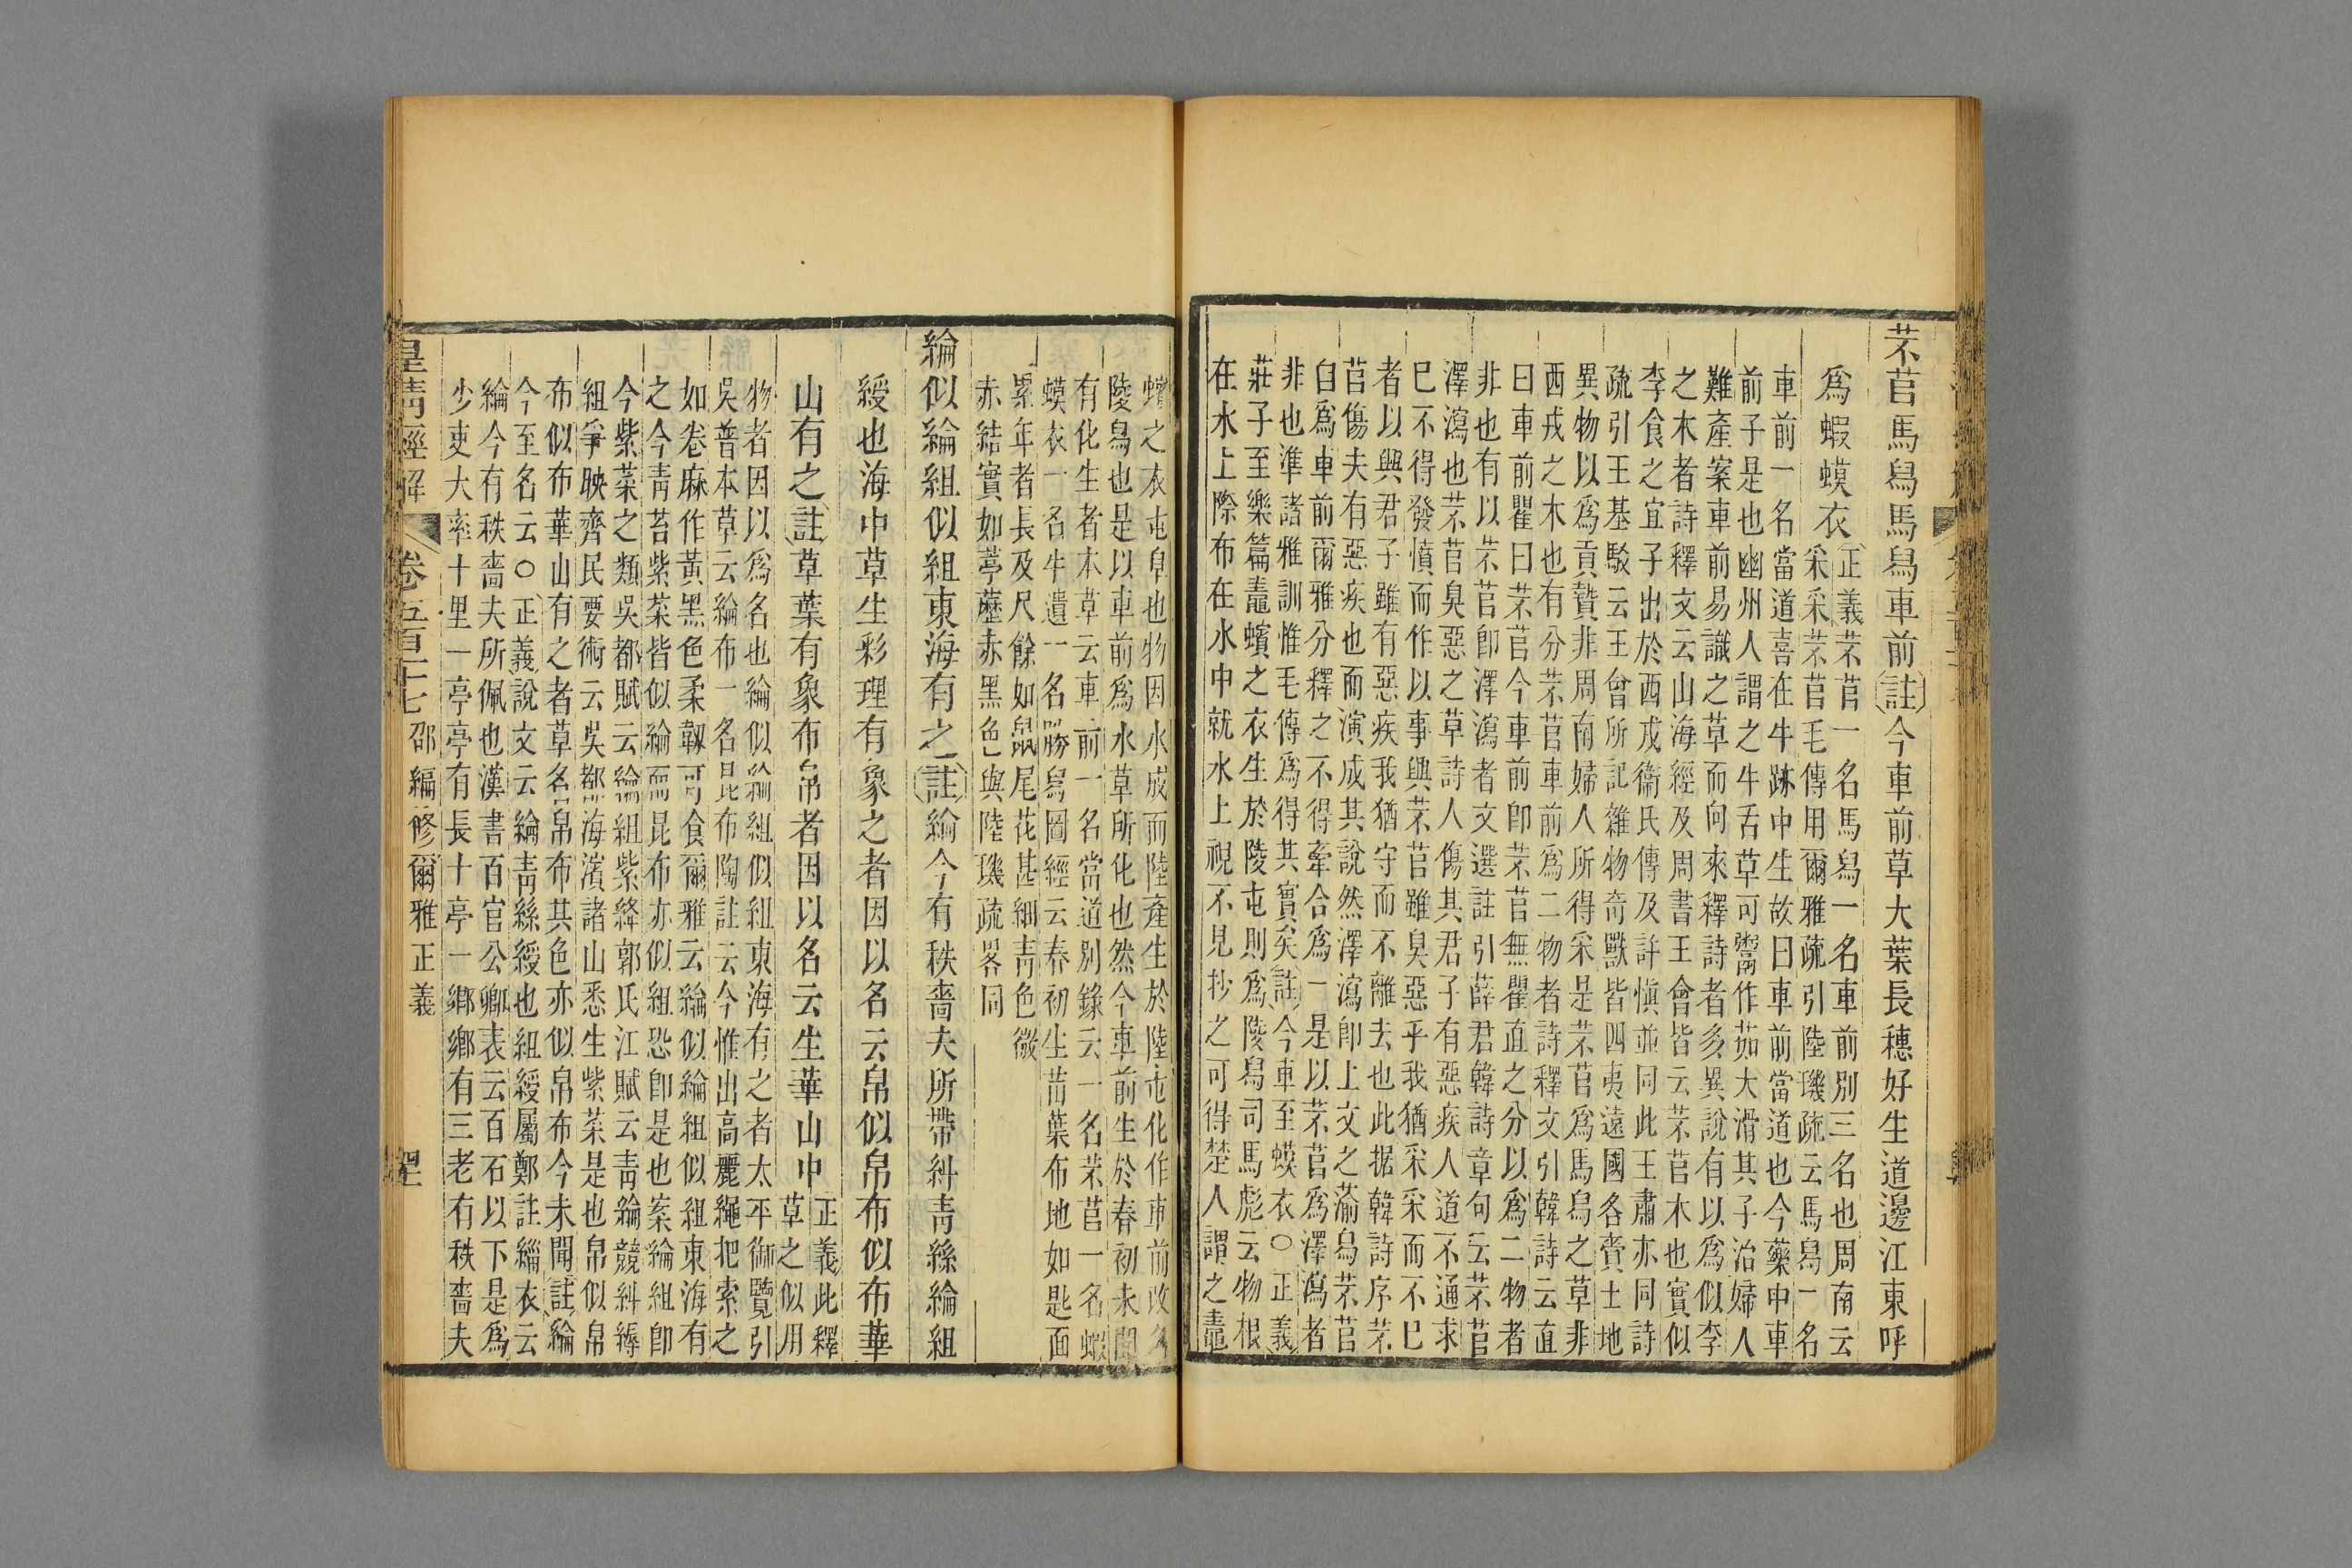 芣苢馬舄馬舄車前註今車前草大葉長穗好生道邊江東呼
爲蝦蟆衣
正義芣苢一名馬舄一名車前別三名也周南云
采采芣苢毛傳用爾雅疏引陸璣疏云馬舄一名
車前一名當道喜在牛跡中生故曰車前當道也今藥中車
前子是也幽州人謂之牛舌草可鬻作茹大滑其子治婦人
難產案車前易識之草而向來釋詩者多異說有以爲似李
之木者詩釋文云山海經及周書王會皆云芣苢木也實似
李食之宜子出於西戎衞氏傳及許愼並同此王肅亦同詩
疏引王基駁云王會所記雜物奇獸皆四夷遠國各賷土地
異物以爲貢贄非周南婦人所得采是芣苢爲馬舄之草非
西戎之木也有分芣苢車前爲二物者詩釋文引韓詩云直
曰車前瞿曰芣苢今車前卽芣苢無瞿直之分以爲二物者
非也有以芣苢卽澤瀉者文選註引薛君韓詩章句云芣苢
澤瀉也芣苢臭惡之草詩人傷其君子有惡疾人道不通求
巳不得發憤而作以事興芣苢雖臭惡乎我猶采采而不巳
者以興君子雖有惡疾我猶守而不離去也此据韓詩序芣
苢傷夫有惡疾也而演成其說然澤瀉卽上文之蕍舄芣苢
自爲車前爾雅分釋之不得牽合爲一是以芣苢爲澤瀉者
非也準諸雅訓惟毛傳爲得其實矣註今車至蟆衣○正義
莊子至樂篇鼃蠙之衣生於陵屯則爲陵舄司馬彪云物根
在水上際布在水中就水上視不見抄之可得楚人謂之鼃
蠙之衣屯阜也物因水成而陸產生於陸屯化作車前改名
陵舄也是以車前爲水草所化也然今車前生於春初未聞
有化生者本草云車前一名當道別錄云一名芣苢一名蝦
蟆衣一名牛遺一名勝舄圖經云春初生苗葉布地如匙面
累年者長及尺餘如鼠尾花甚細靑色微
赤結實如葶藶赤黑色與陸璣疏畧同
綸似綸組似組東海有之註綸今有秩嗇夫所帶糾靑絲綸組
綬也海中草生彩理有象之者因以名云帛似帛布似布華
山有之註草葉有象布帛者因以名云生華山中
正義此釋
草之似用
物者因以爲名也綸似綸組似組東海有之者太平御覽引
吳普本草云綸布一名昆布陶註云今惟出高麗繩把索之
如卷麻作黃黑色柔韌可食爾雅云綸似綸組似組東海有
之今靑苔紫菜皆似綸而昆布亦似組恐卽是也案綸組卽
今紫菜之類吳都賦云綸組紫絳郭氏江賦云靑綸競糾縟
組爭映齊民要術云吳都海濱諸山悉生紫菜是也帛似帛
布似布華山有之者草名帛布其色亦似帛布今未聞註綸
今至名云○正義說文云綸靑絲綬也紐綬屬鄭註緇衣云
綸今有秩嗇夫所佩也漢書百官公卿表云百石以下是爲
少吏大率十里一亭亭有長十亭一鄉鄉有三老有秩嗇夫
皇淸經解
卷五百十七
邵編修爾雅正義